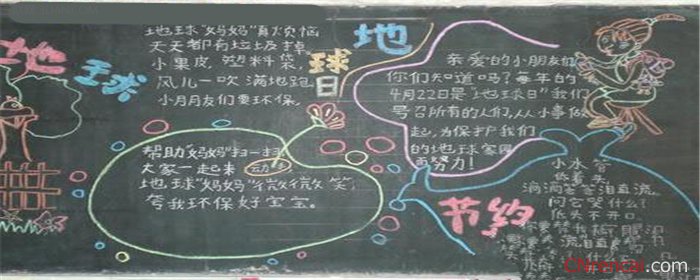 地球
地球"妈妈"真烦恼
天天都有垃圾掉
小果皮,塑料袋
风儿一吹满地跑
小朋友们要环保
帮助"妈妈"扫一扫
大家一起来动
地球"妈妈"微微笑
夸我环保好宝宝。
地球日
亲爱的小朋友们
你们知道吗?每年的
4月22日是"地球日"我们
号召所有的人们,从小事做
起,为保护我们
的地球家园
而努力!
节约
小水管
低着头
滴滴答答泪直流
问它哭什么!
低头不开口
Chinmcai.com